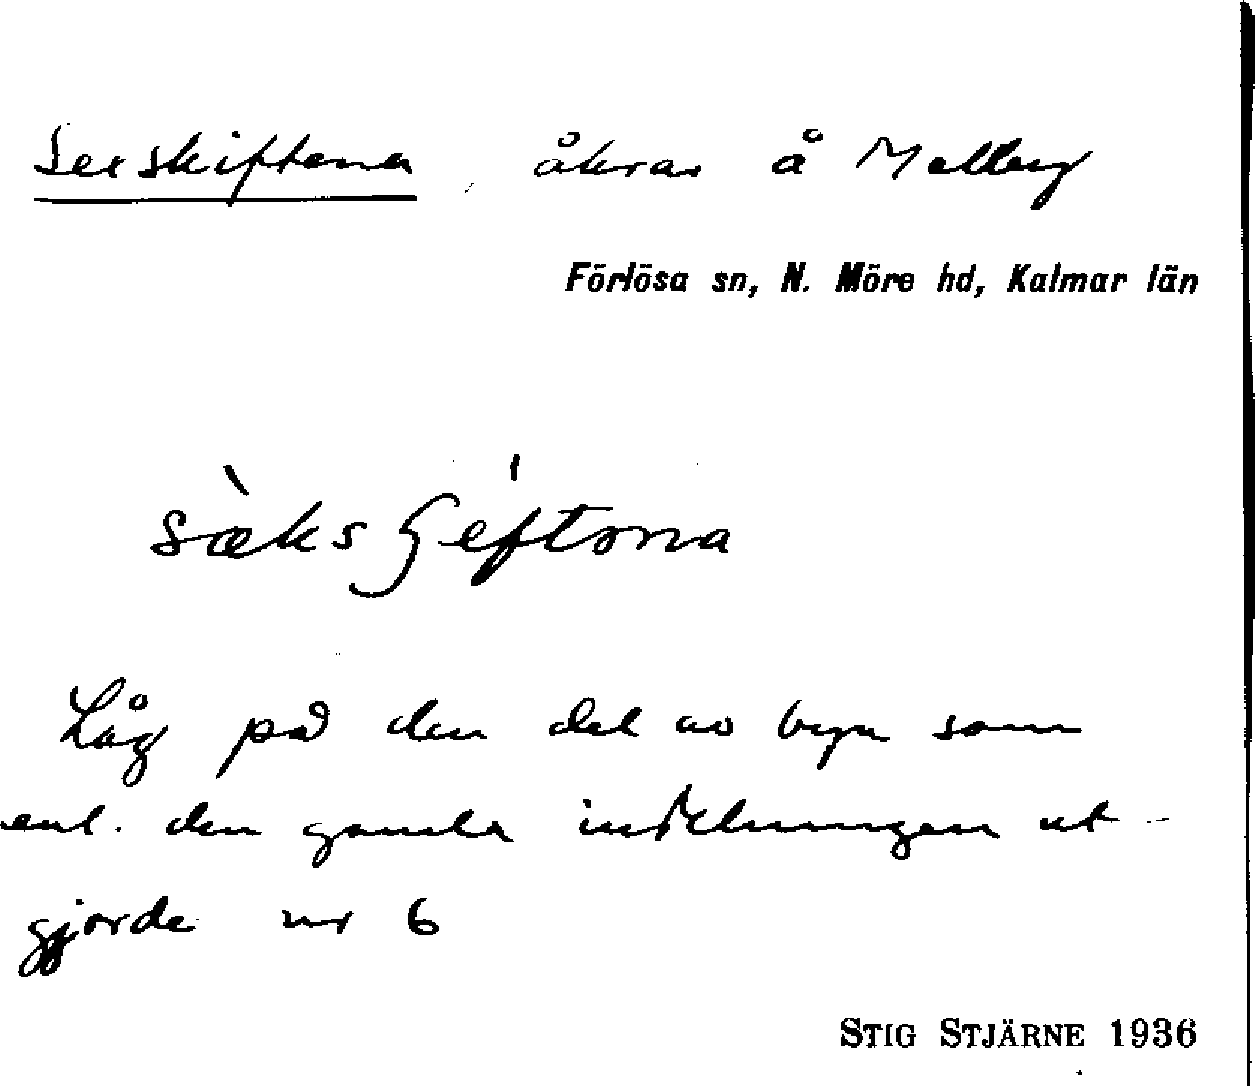 Sexskiftena, åkrar å Melby
Förlösa sn, N. Möre hd, Kalmar län
sæksʃeftona
Låg på den del av byn som
enl. den gamla indelningen ut-
gjorde nr 6
STIG STJÄRNE 1936